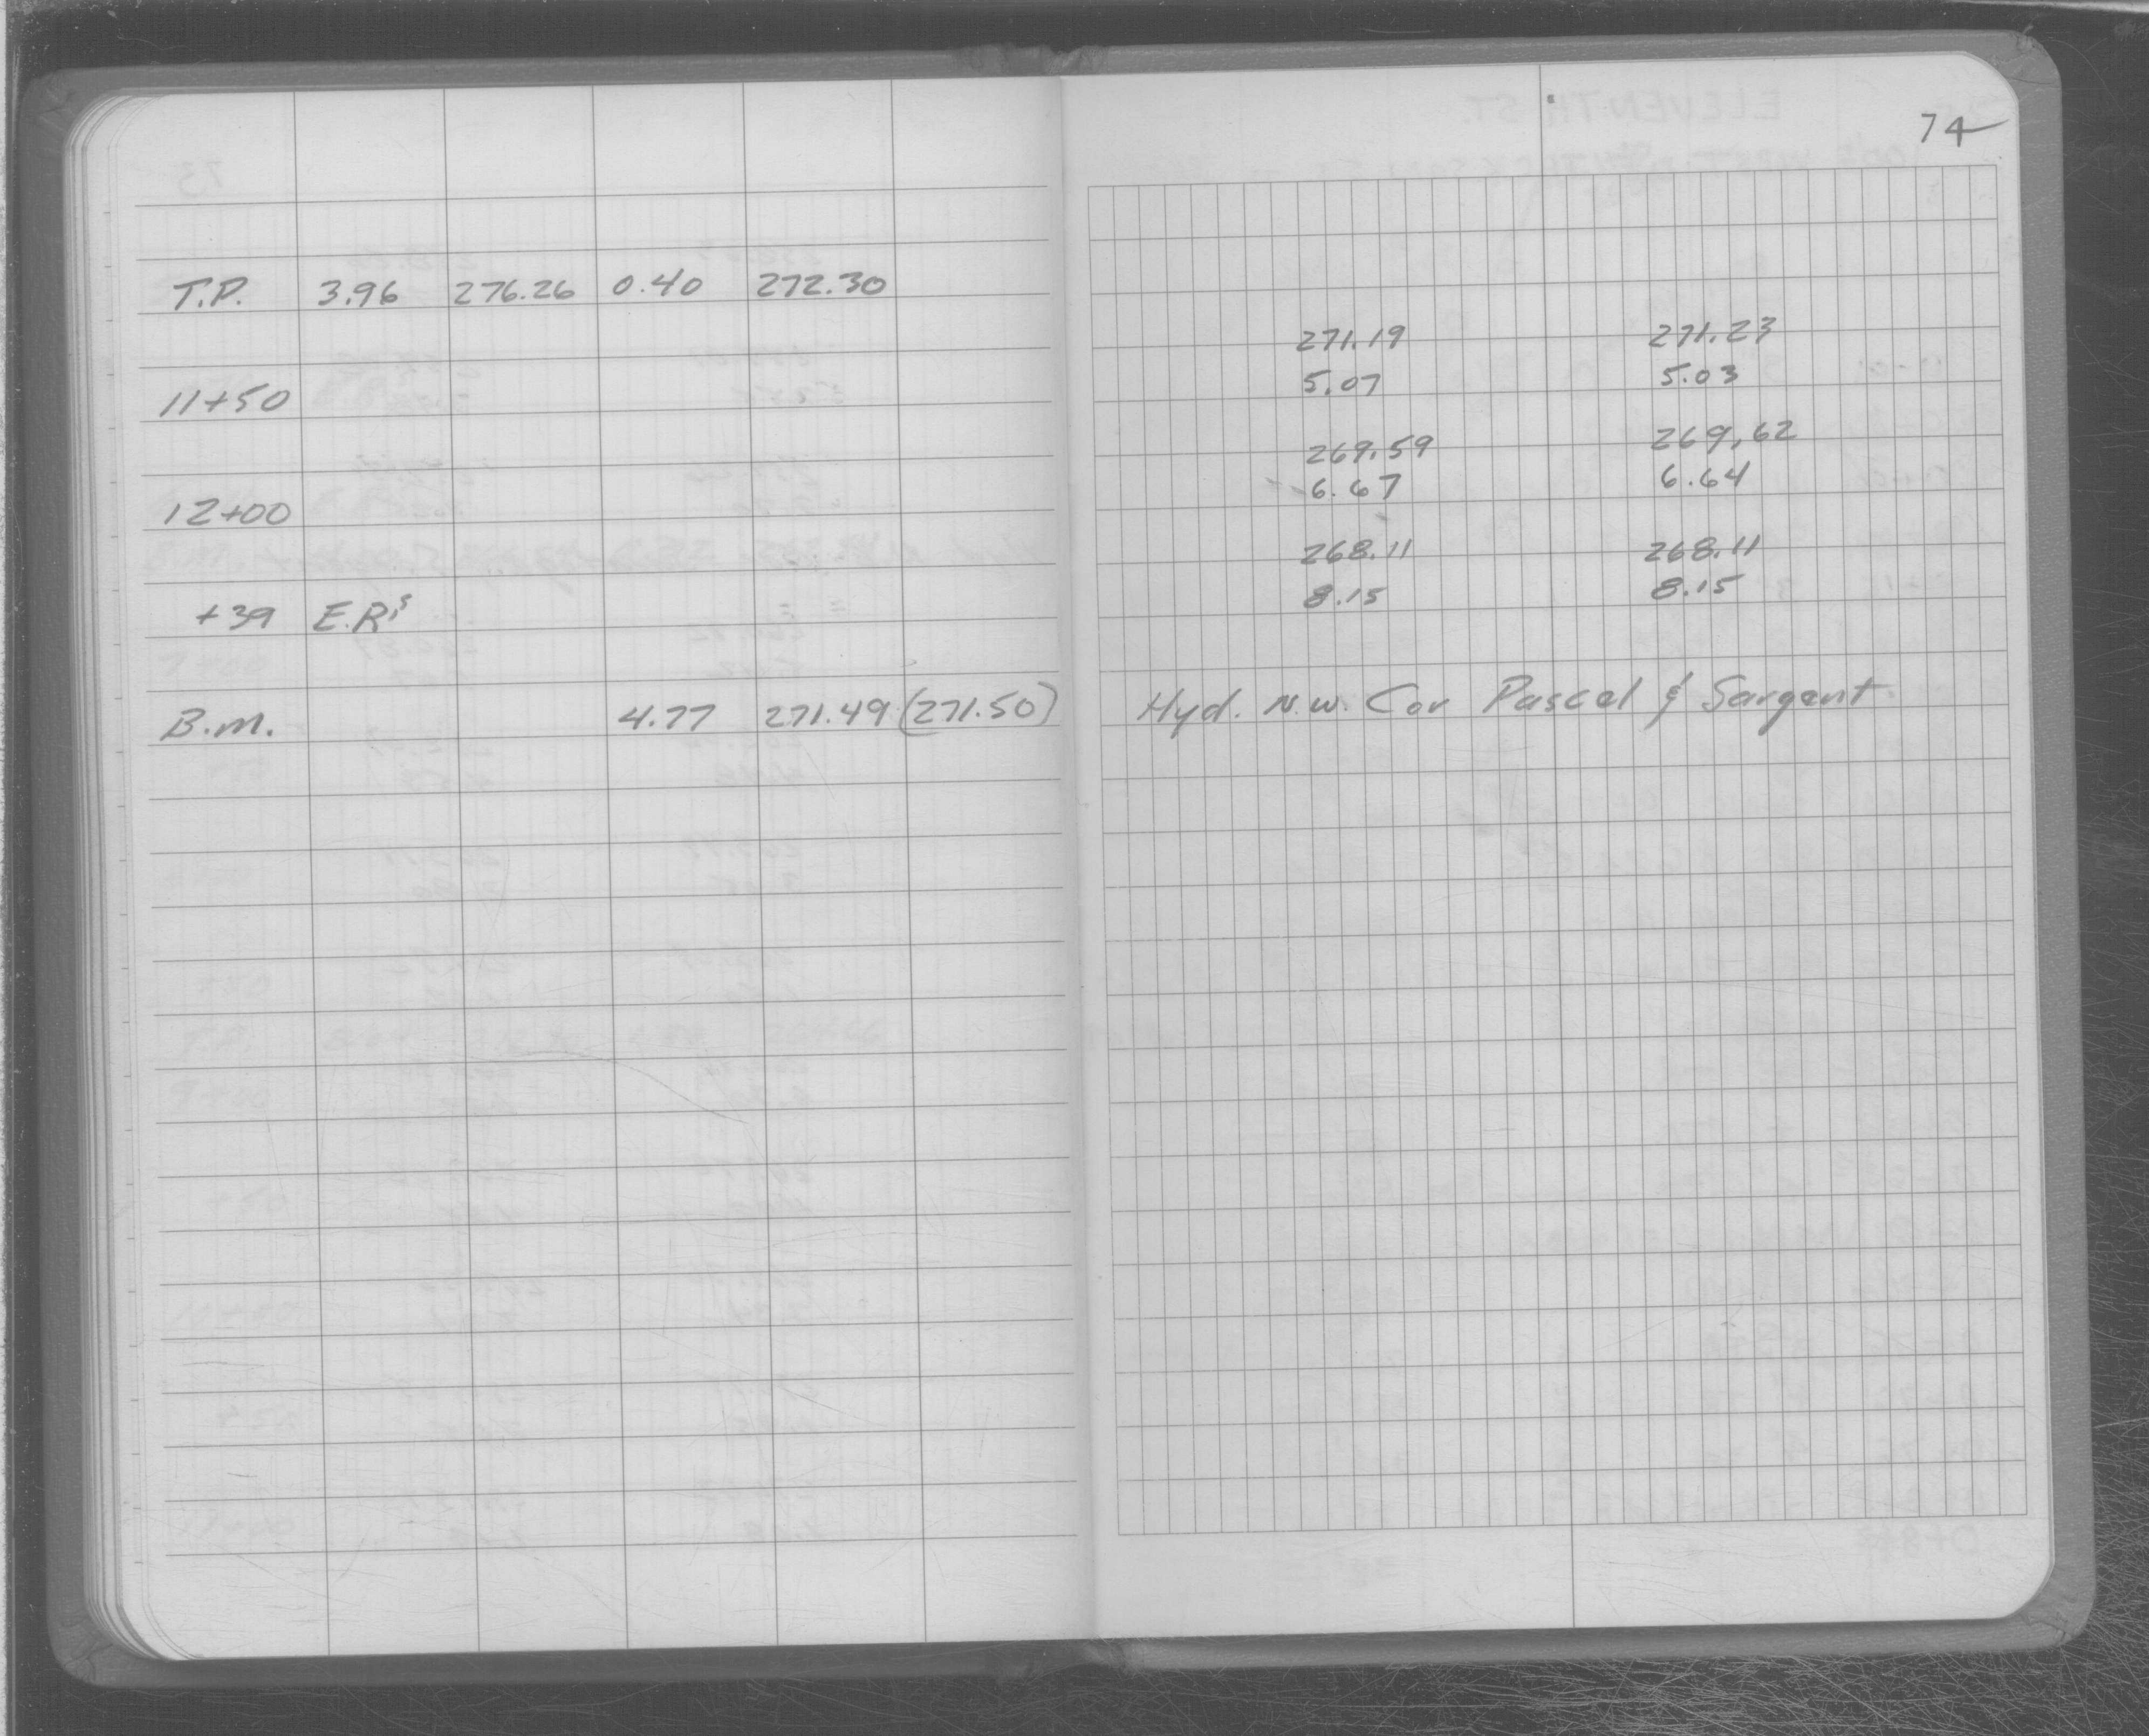 74
T.P. 3.96 276.26 0.40 272.30
271.19 271.23
11+50 5.07 5.03
269.59 269.62
12+00 6.67 6.64
268.11 268.11
+39 E.R's 8.15 8.15
B.M. 4.77 271.49 (271.50) Hyd. N.W. Cor Pascal & Sargent